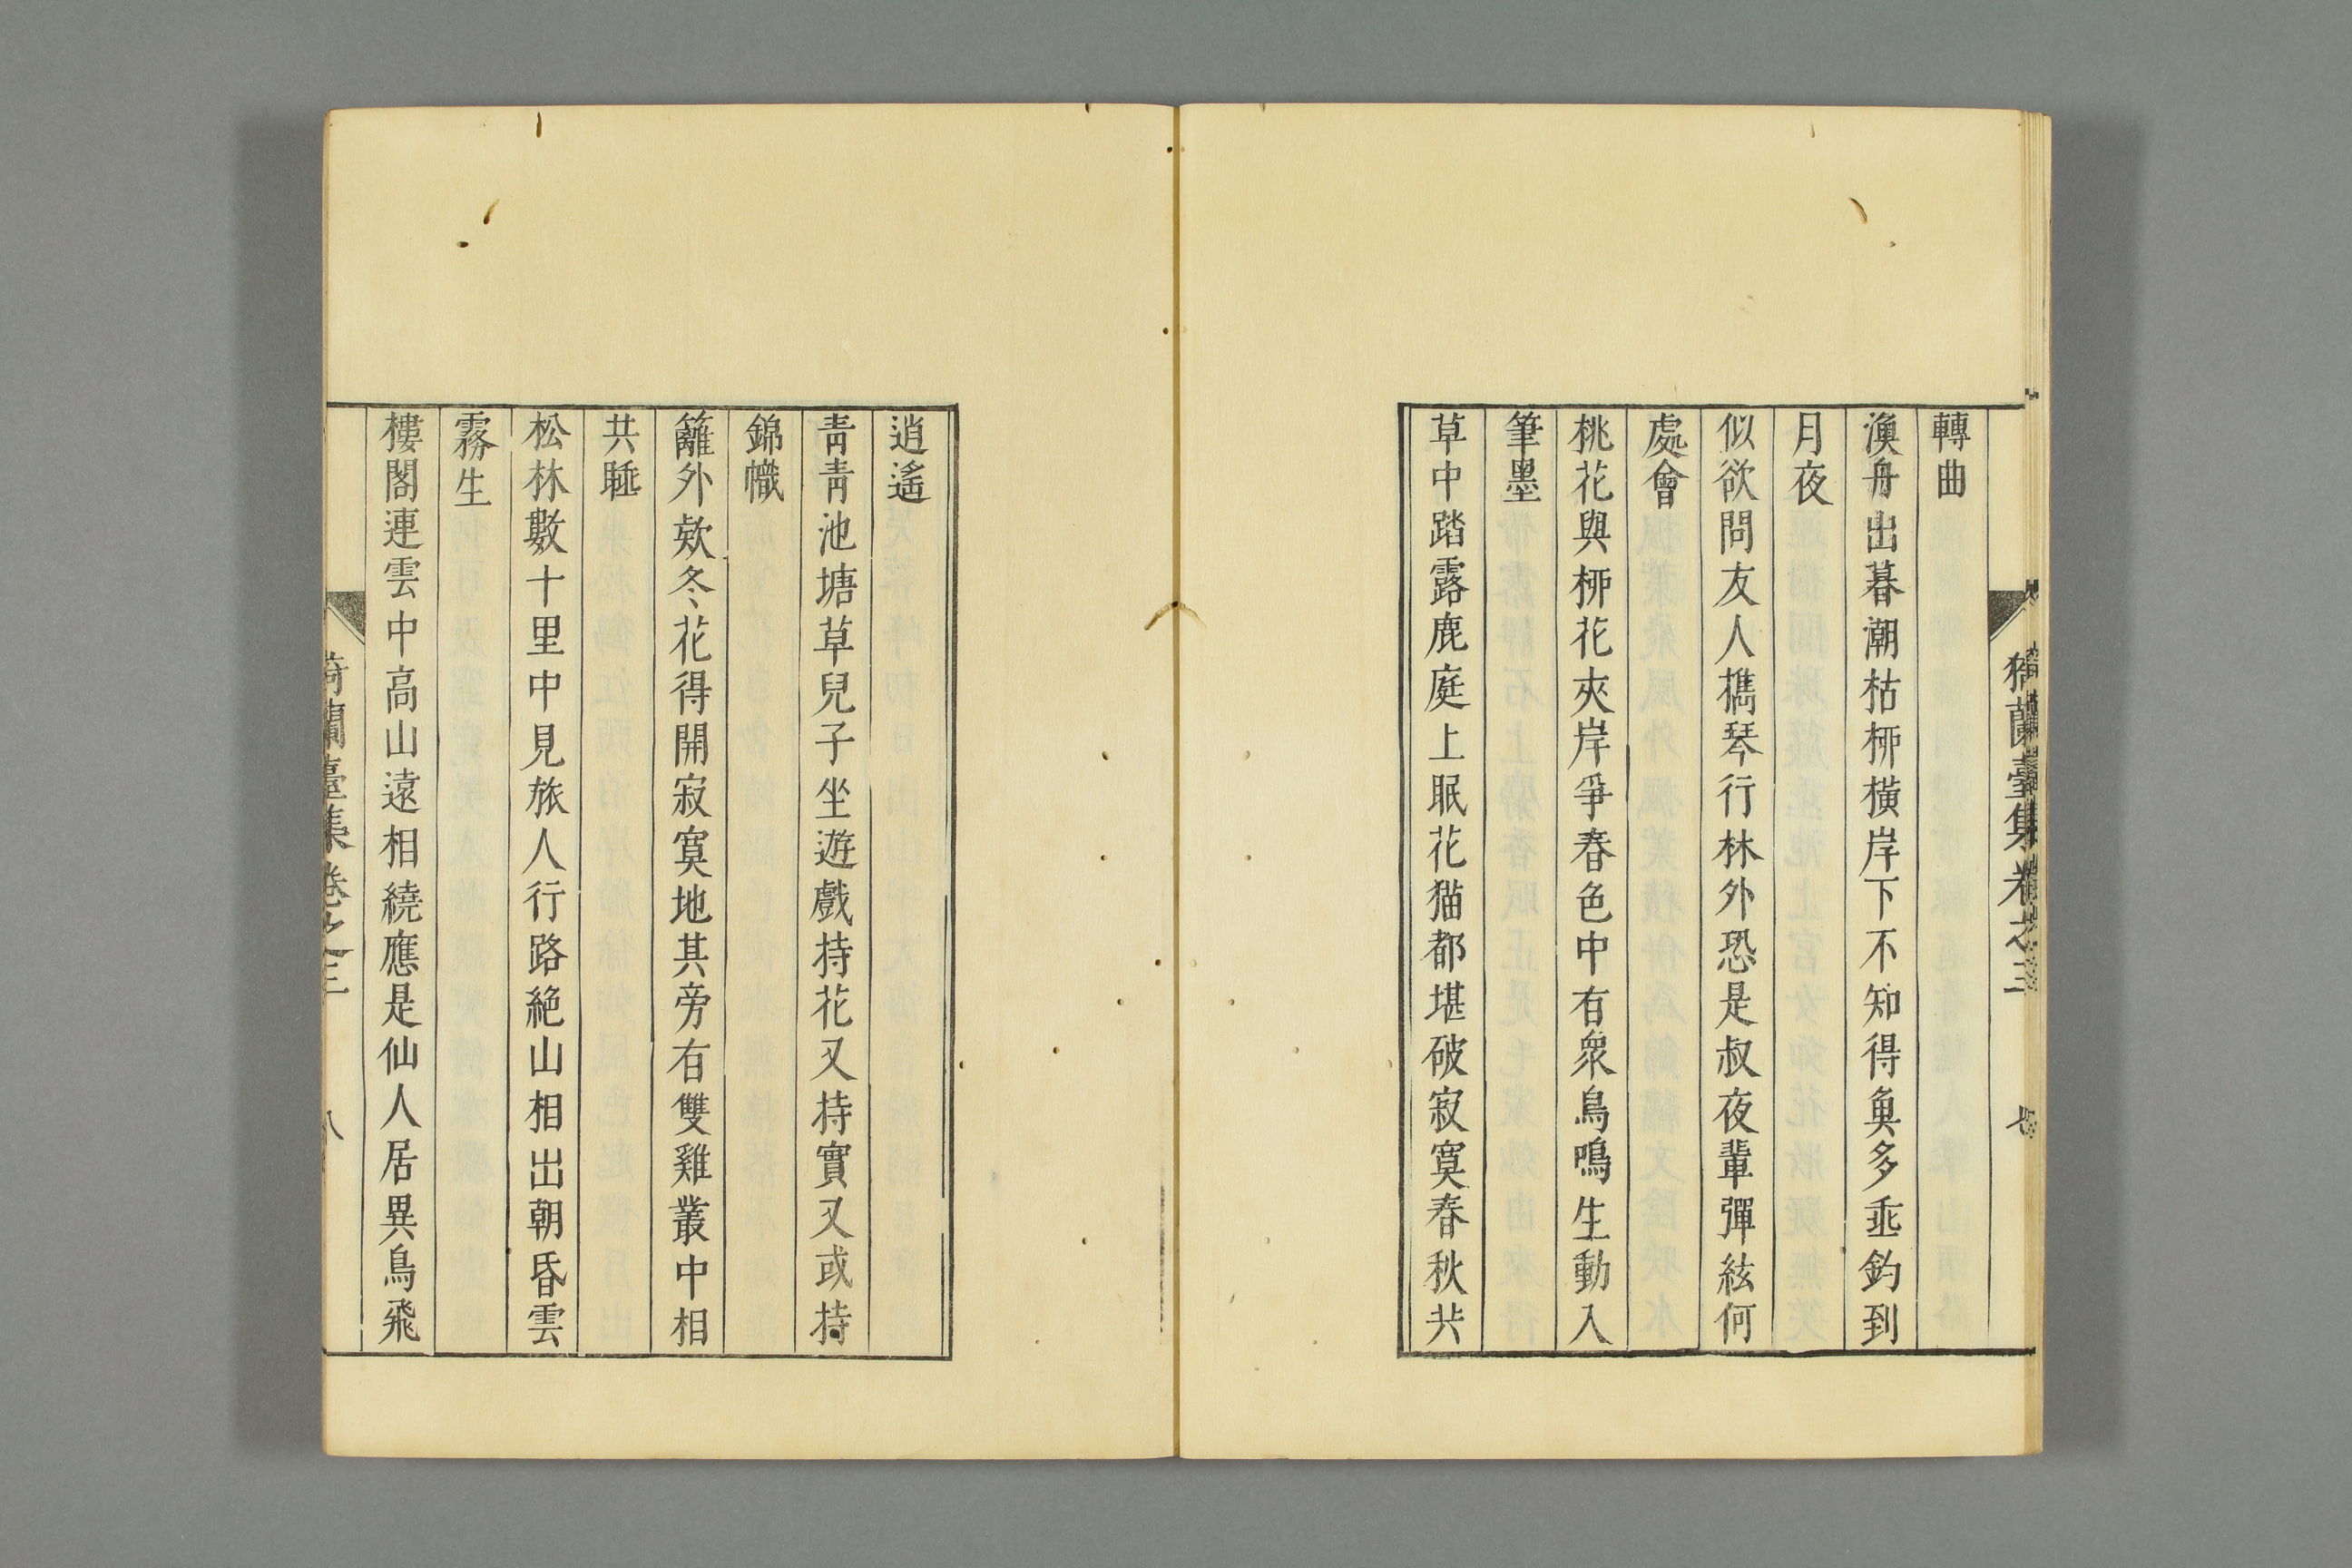 猗蘭臺集卷之三 七
轉曲
漁舟出暮潮枯栁橫岸下不知得魚多垂釣到
月夜
似欲問友人㩗琴行林外恐是叔夜輩彈絃何
處會
桃花與栁花夾岸爭春色中有衆鳥鳴生動入
筆墨
草中踏露鹿庭上眠花猫都堪破寂寞春秋共
逍遙
靑靑池塘草兒子坐遊戲持花又持實又或持
錦幟
籬外欵冬花得開寂寞地其旁有雙雞叢中相
共睡
松林數十里中見旅人行路絶山相出朝昏雲
霧生
樓閣連雲中高山遠相繞應是仙人居異鳥飛
猗蘭臺集卷之三 八